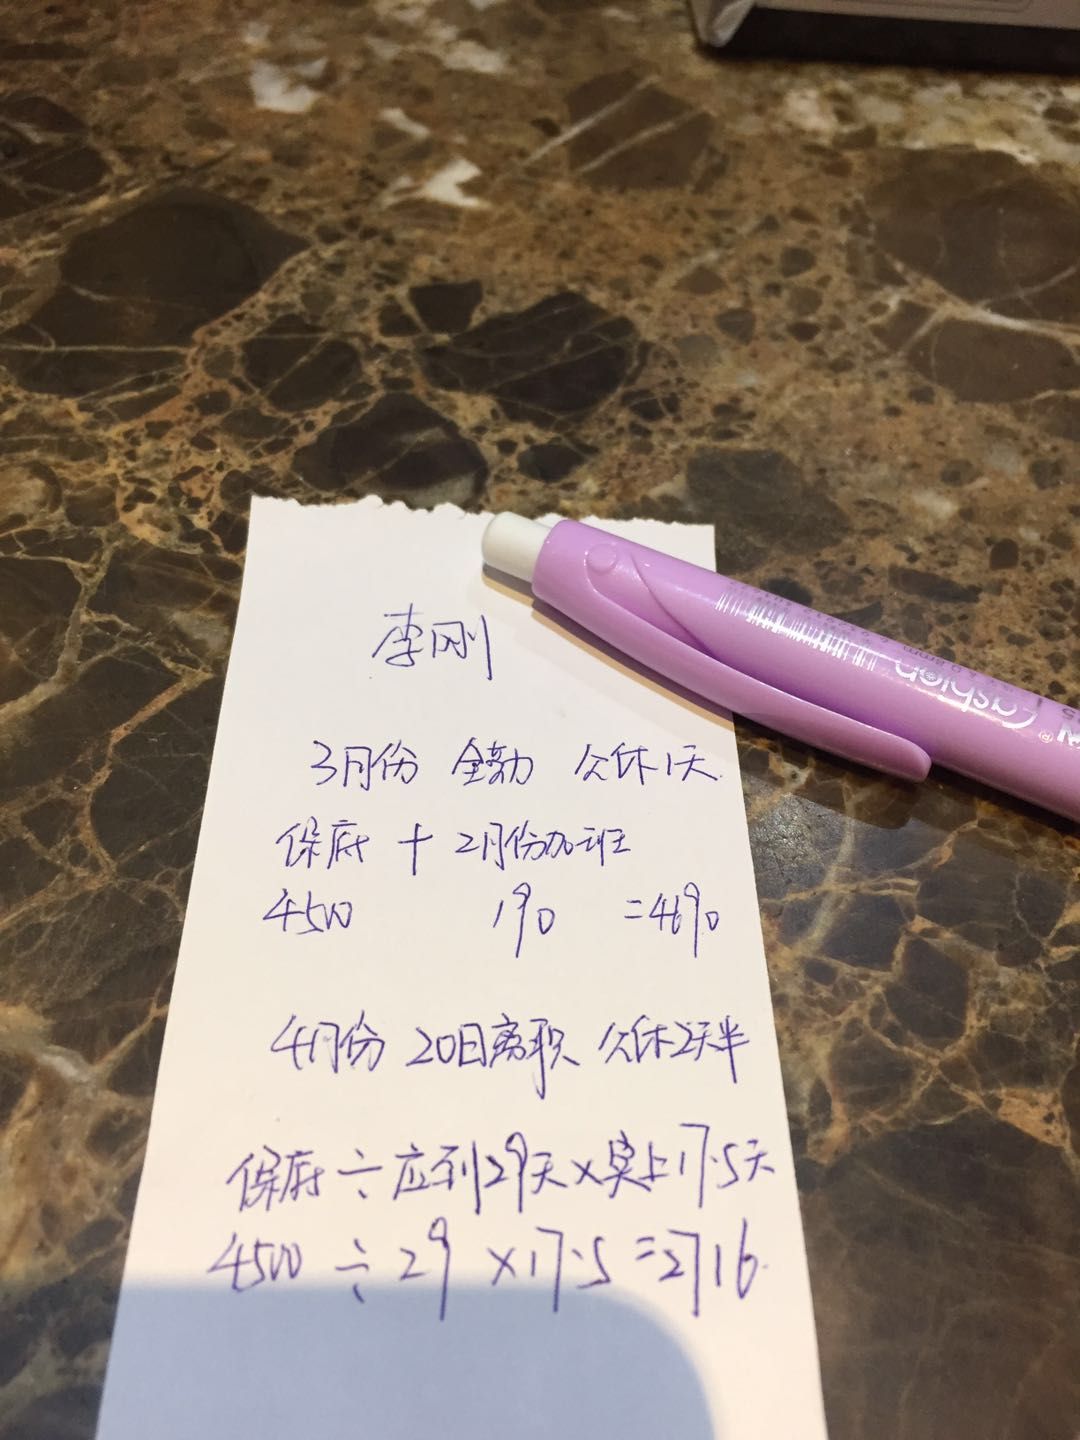 李刚
3月份 全勤 公休1天
保府 + 2月份加班
4500 190 =4690
4月份 20日离职 公休2天半
保府 ÷ 应到29天×实上17.5天
4500 ÷ 29 ×17.5=2716
Fashion